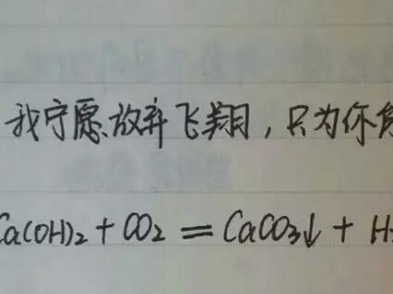 我宁愿放弃飞翔，只为你
Ca(OH)₂ + CO₂ = CaCO₃↓ + H